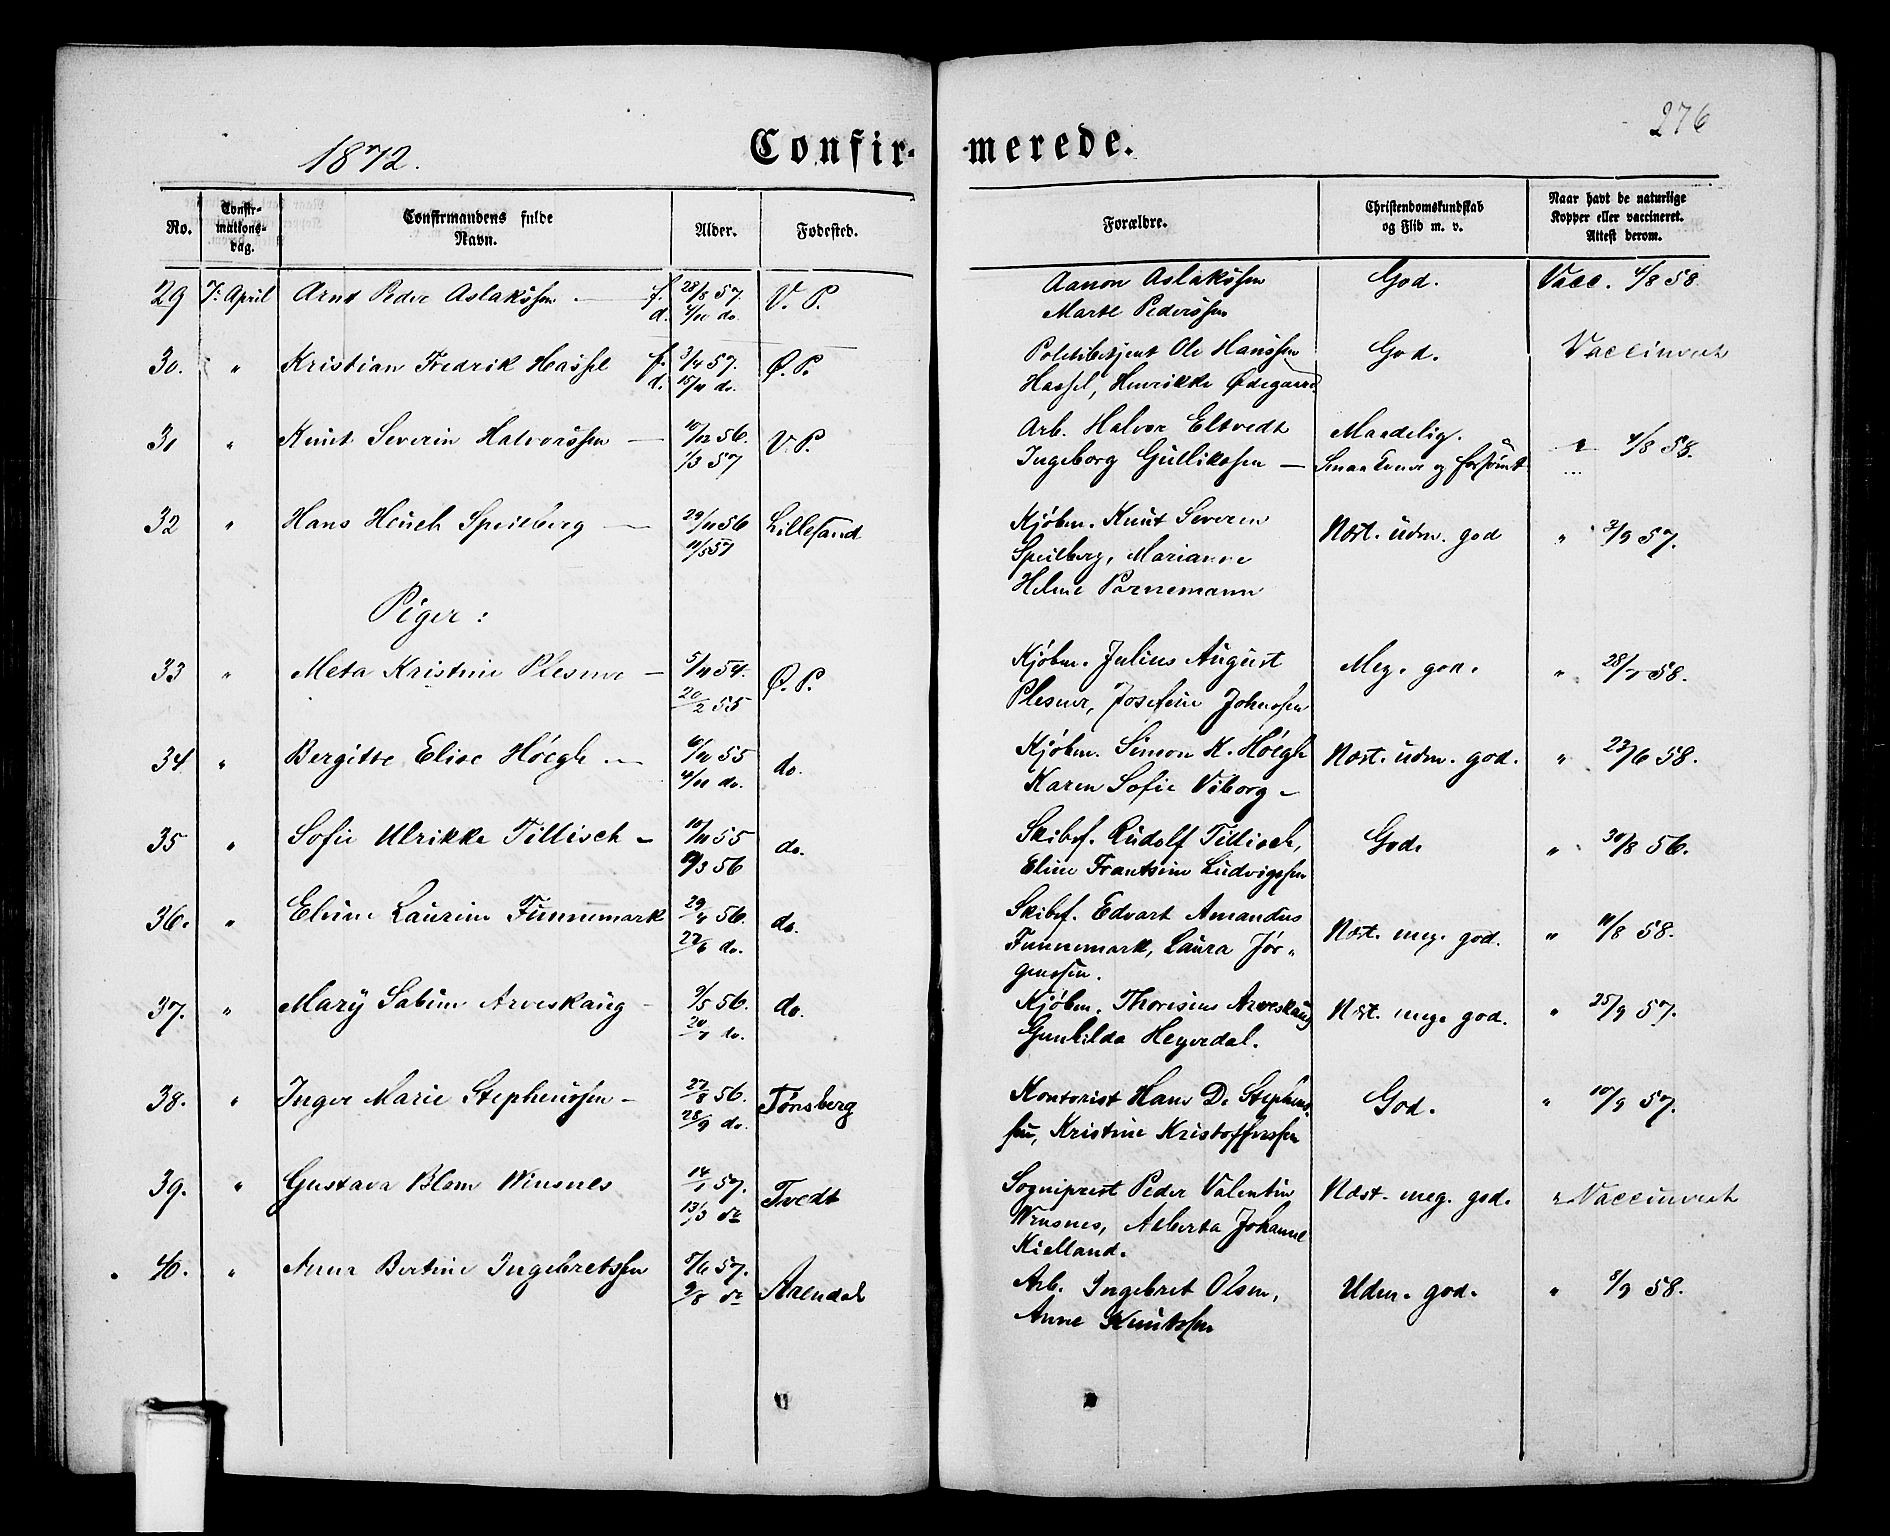 276
1872.
Confir- merede.
No.
Confir-
mations-
dag.
Confirmandens fulde
Navn.
Alder.
Fødested.
Forældre.
Christendomskundskab
og Flid m. v.
Naar havt de naturlige
Kopper eller vaccineret.
Attest derom.
29 7: April Arnt Peder Aslakssen — f. 28/8 57. V. P. Aanon Aslakssen God. Vacc. 4/8 58.
d. 4/10 do. Marte Pederssen
30. " Kristian Fredrik Hassel f. 3/4 57. Ø. P. Politibetjent Ole Hanssen God. Vaccineret
d. 15/11 do. Hassel, Henrikke Ødegaard
31 " Knut Severin Halvorssen — 10/12 56. V. P. Arb. Halvor Eltvedt Maadelig. " 4/8 58.
1/3 57 Ingeborg Gullikssen — Smaa Evner og forsømt
32 " Hans Heuch Speilberg — 29/11 56 Lillesand Kjøbm. Knut Severin Næst. udm. god " 3/9 57.
11/5 57 Speilberg, Marianne
Helene Parnemann
Piger:
33 " Meta Kristine Plesner — 5/11 54. Ø. P. Kjøbm. Julius August Meg. god. " 28/7 58.
20/2 55 Plesner, Josefine Johnssen
34. " Bergitte Elise Höegh — 6/10 55 do. Kjøbm. Simon K. Höegh Næst. udm. god. " 23/6 58.
4/11 do. Karen Sofie Viborg —
35 " Sofie Ulrikke Tillisch — 10/11 55 do. Skibsf. Rudolf Tillisch, God. " 30/8 56.
9/3 56 Eline Frantsine Ludvigssen
36. " Elvine Laurine Funnemark 29/4 56. do. Skibsf. Edvart Amandus Næst. meg. god. " 11/8 58.
22/6 do. Funnemark, Laura Jør-
genssen.
37. " Mary Sabine Arveskaug — 9/5 56. do. Kjøbm. Thorsius Arveskaug Næst. meg. god. " 25/9 57.
20/7 do. Gunhilda Heyerdal.
38. " Inger Marie Stephenssen — 27/8 56. Tönsberg Kontorist Hans D. Stephens- God. " 10/9 57.
28/9 do. sen, Kristine Kristofferssen
39. " Gustava Blom Winsnes 14/1 57. Tvedt Sognepræst Peder Valentin Næst. meg. god. " Vaccineret
13/3 do Winsnes, Alberta Johanne
Kielland.
40. " Anna Bertine Ingebretssen 5/6 57. Arendal Arb. Ingebret Olsen, Udm. god. " 8/9 58.
9/8 do Anne Knutssen